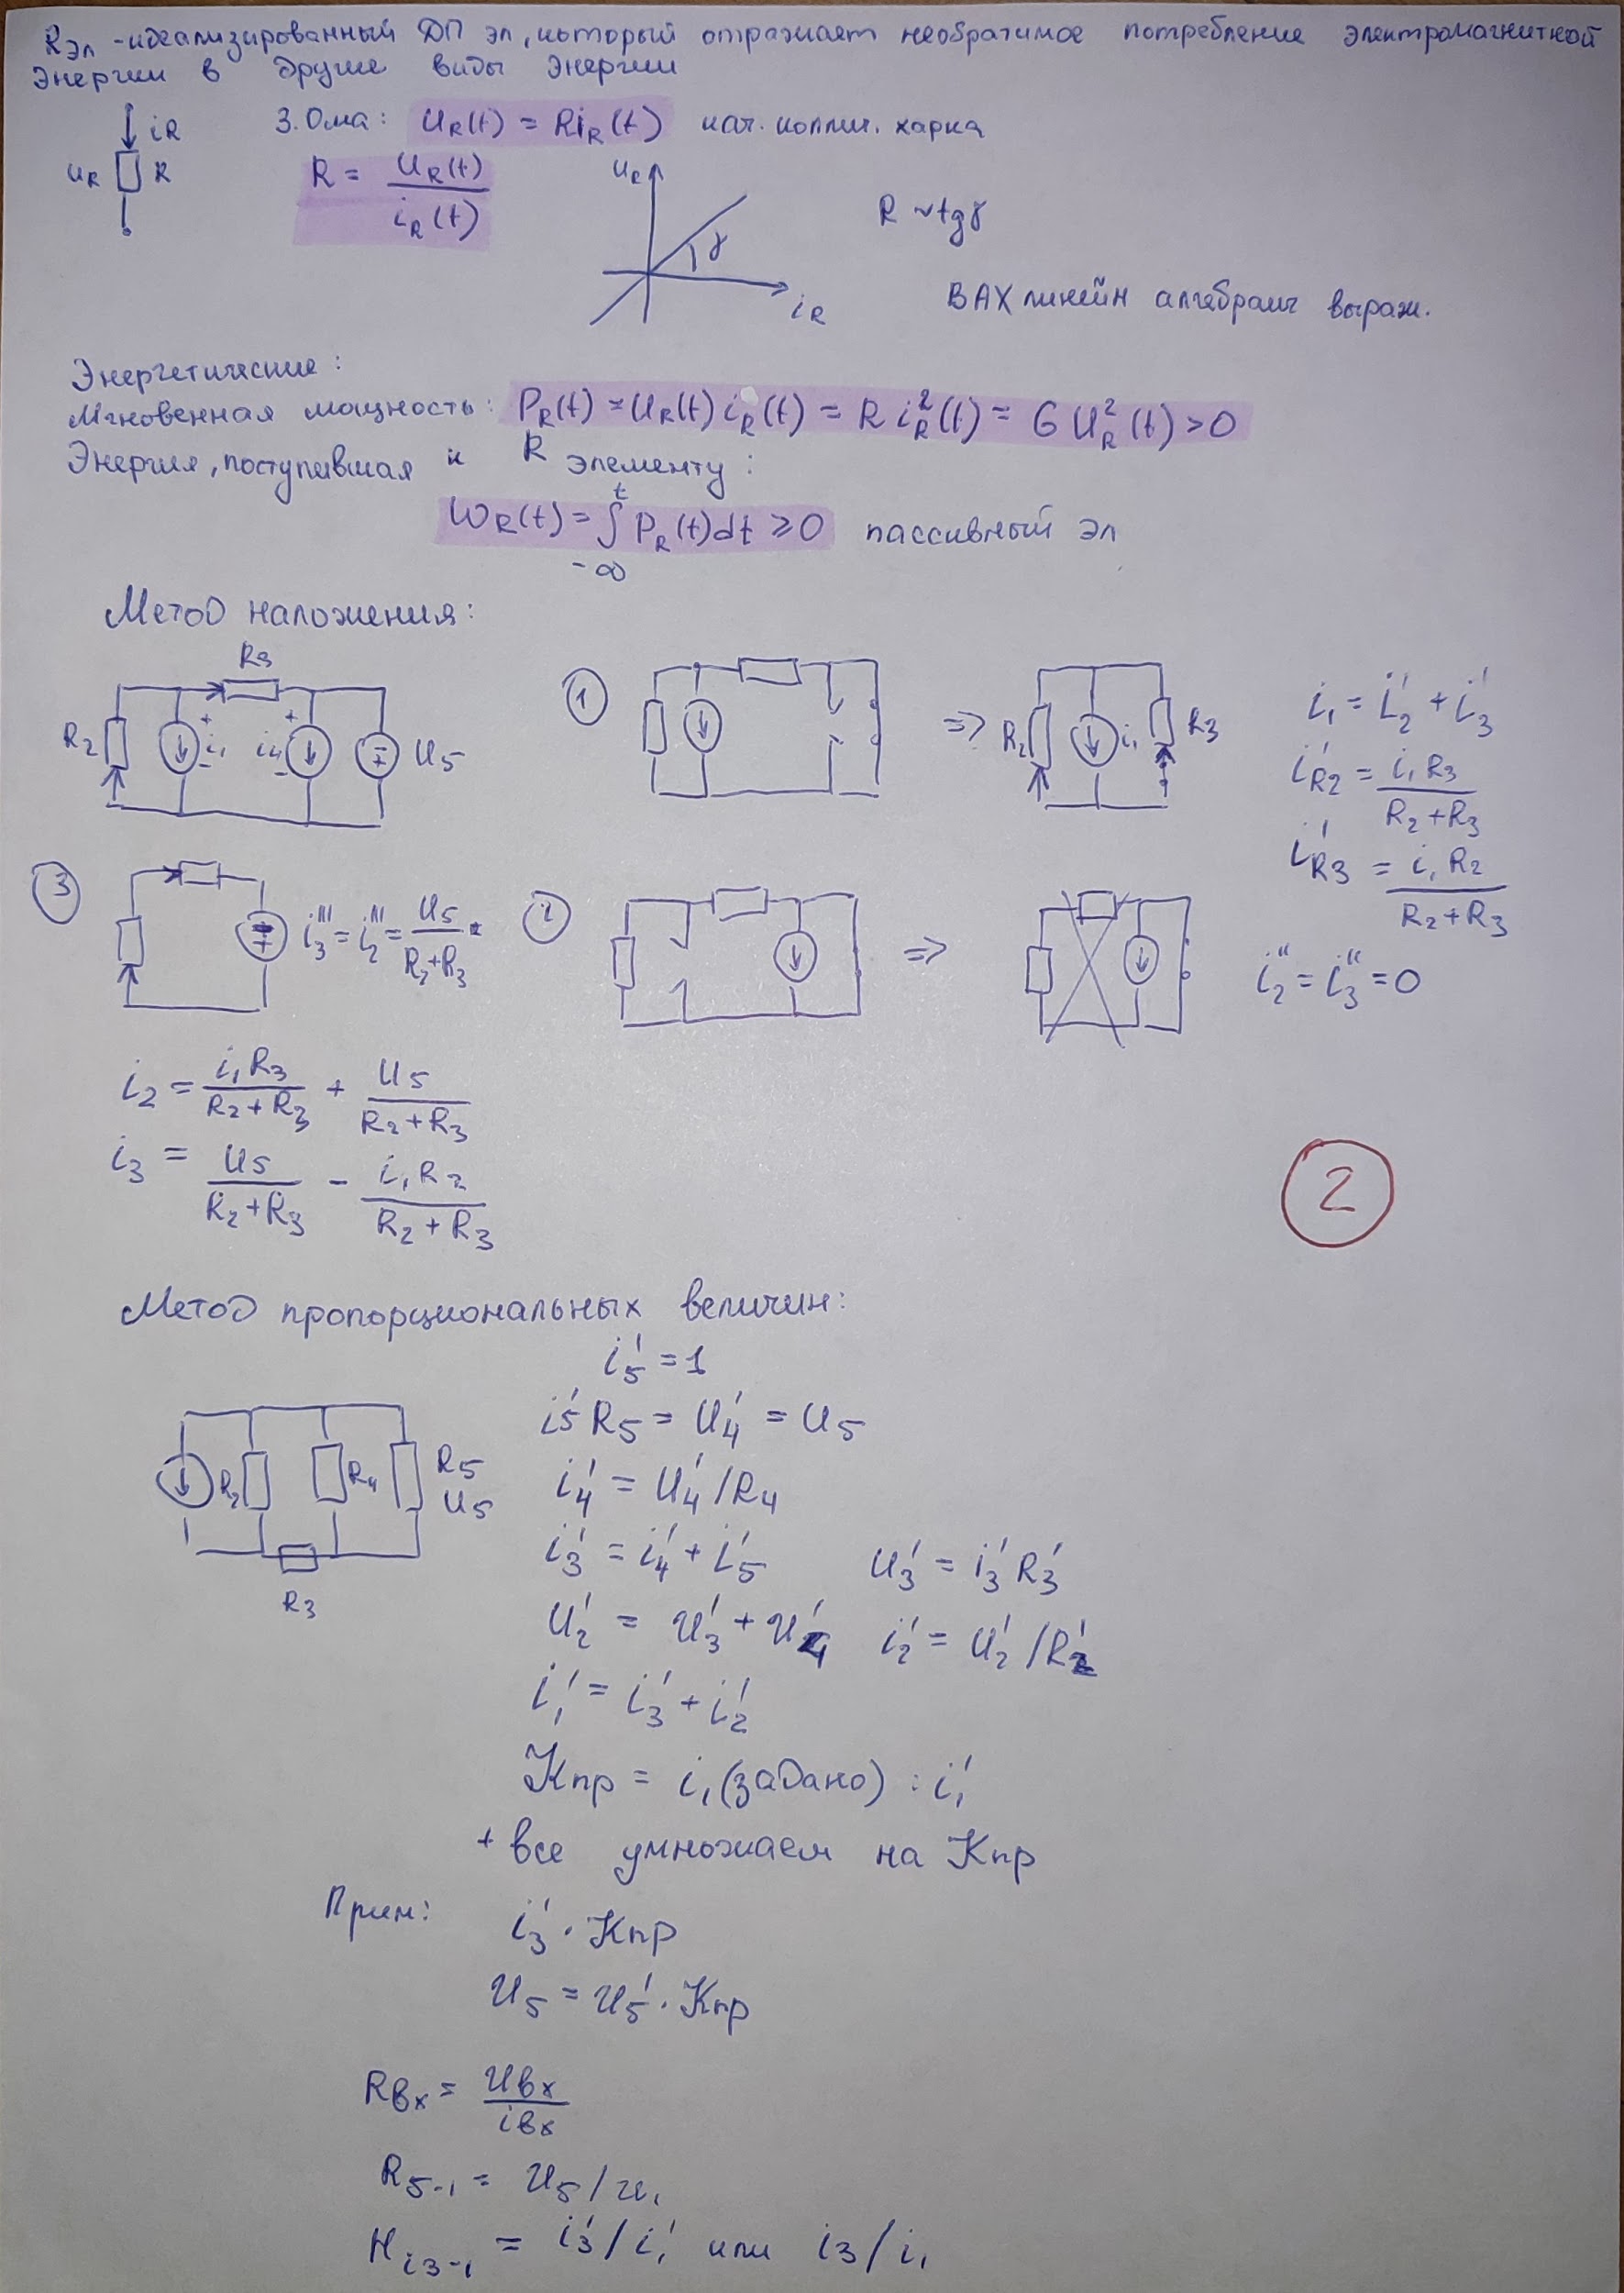 Rэл - идеализированный ДП эл, который отражает необратимое потребление электромагнитной
энергии в другие виды энергии
iR
uR R
З. Ома: UR(t) = RiR(t) кач. коллич. харка
R = UR(t) / iR(t)
uR
γ
iR
R ~ tgγ
ВАХ линейн алгебраич выраж.
Энергетические:
Мгновенная мощность: PR(t) = UR(t) iR(t) = R iR²(t) = G UR²(t) > 0
Энергия, поступившая к R элементу:
WR(t) = ∫ PR(t)dt ≥ 0 пассивный эл
t
-∞
Метод наложения:
R3
R2 i1 i4 U5
1
=> R2 i1 R3
i1 = i2' + i3'
i'R2 = i1 R3 / (R2 + R3)
i'R3 = i1 R2 / (R2 + R3)
3
i3''' = i2''' = U5 / (R2 + R3)
2
=>
i2'' = i3'' = 0
i2 = i1 R3 / (R2 + R3) + U5 / (R2 + R3)
i3 = U5 / (R2 + R3) - i1 R2 / (R2 + R3)
2
Метод пропорциональных величин:
i5' = 1
i5' R5 = U4' = U5
R2 R4 R5
U5
R3
i4' = U4' / R4
i3' = i4' + i5' U3' = i3' R3'
U2' = U3' + U4' i2' = U2' / R2'
i1' = i3' + i2'
Kпр = i1 (задано) : i1'
+ все умножаем на Kпр
Прим: i3' · Kпр
U5 = U5' · Kпр
Rвх = Uвх / iвх
R5-1 = U5 / u1
Hi3-1 = i3' / i1' или i3 / i1